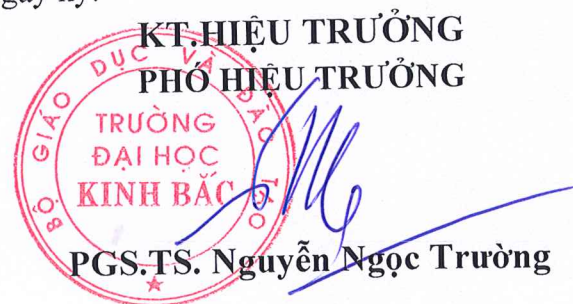 KT.HIỆU TRƯỞNG
PHÓ HIỆU TRƯỞNG
BỘ GIÁO DỤC VÀ ĐÀO TẠO
TRƯỜNG
ĐẠI HỌC
KINH BẮC
PGS.TS. Nguyễn Ngọc Trường